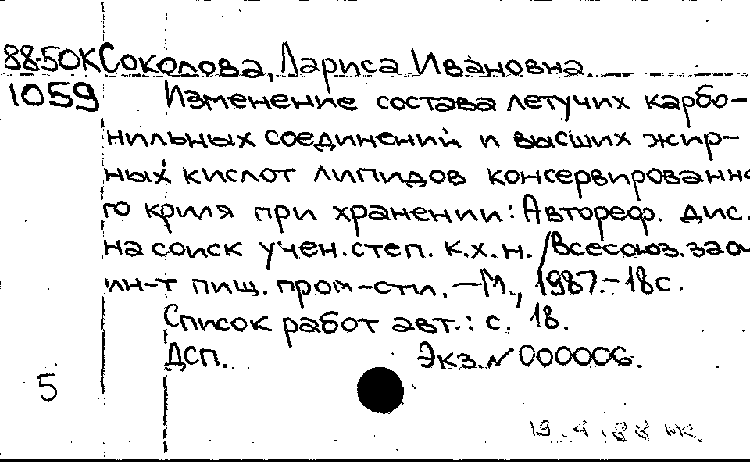 88-50К Соколова, Лариса Ивановна
1059 Изменение состава летучих карбо-
нильных соединений и высших жир-
ных кислот липидов консервированно
го криля при хранении: Автореф. дис.
на соиск учен. степ. к.х.н. /Всесоюз. заоч
ин-т пищ. пром-сти. -М., 1987.-18с.
Список работ авт.: с. 18.
ДСП. Экз. № 000006.
5
19.4.88